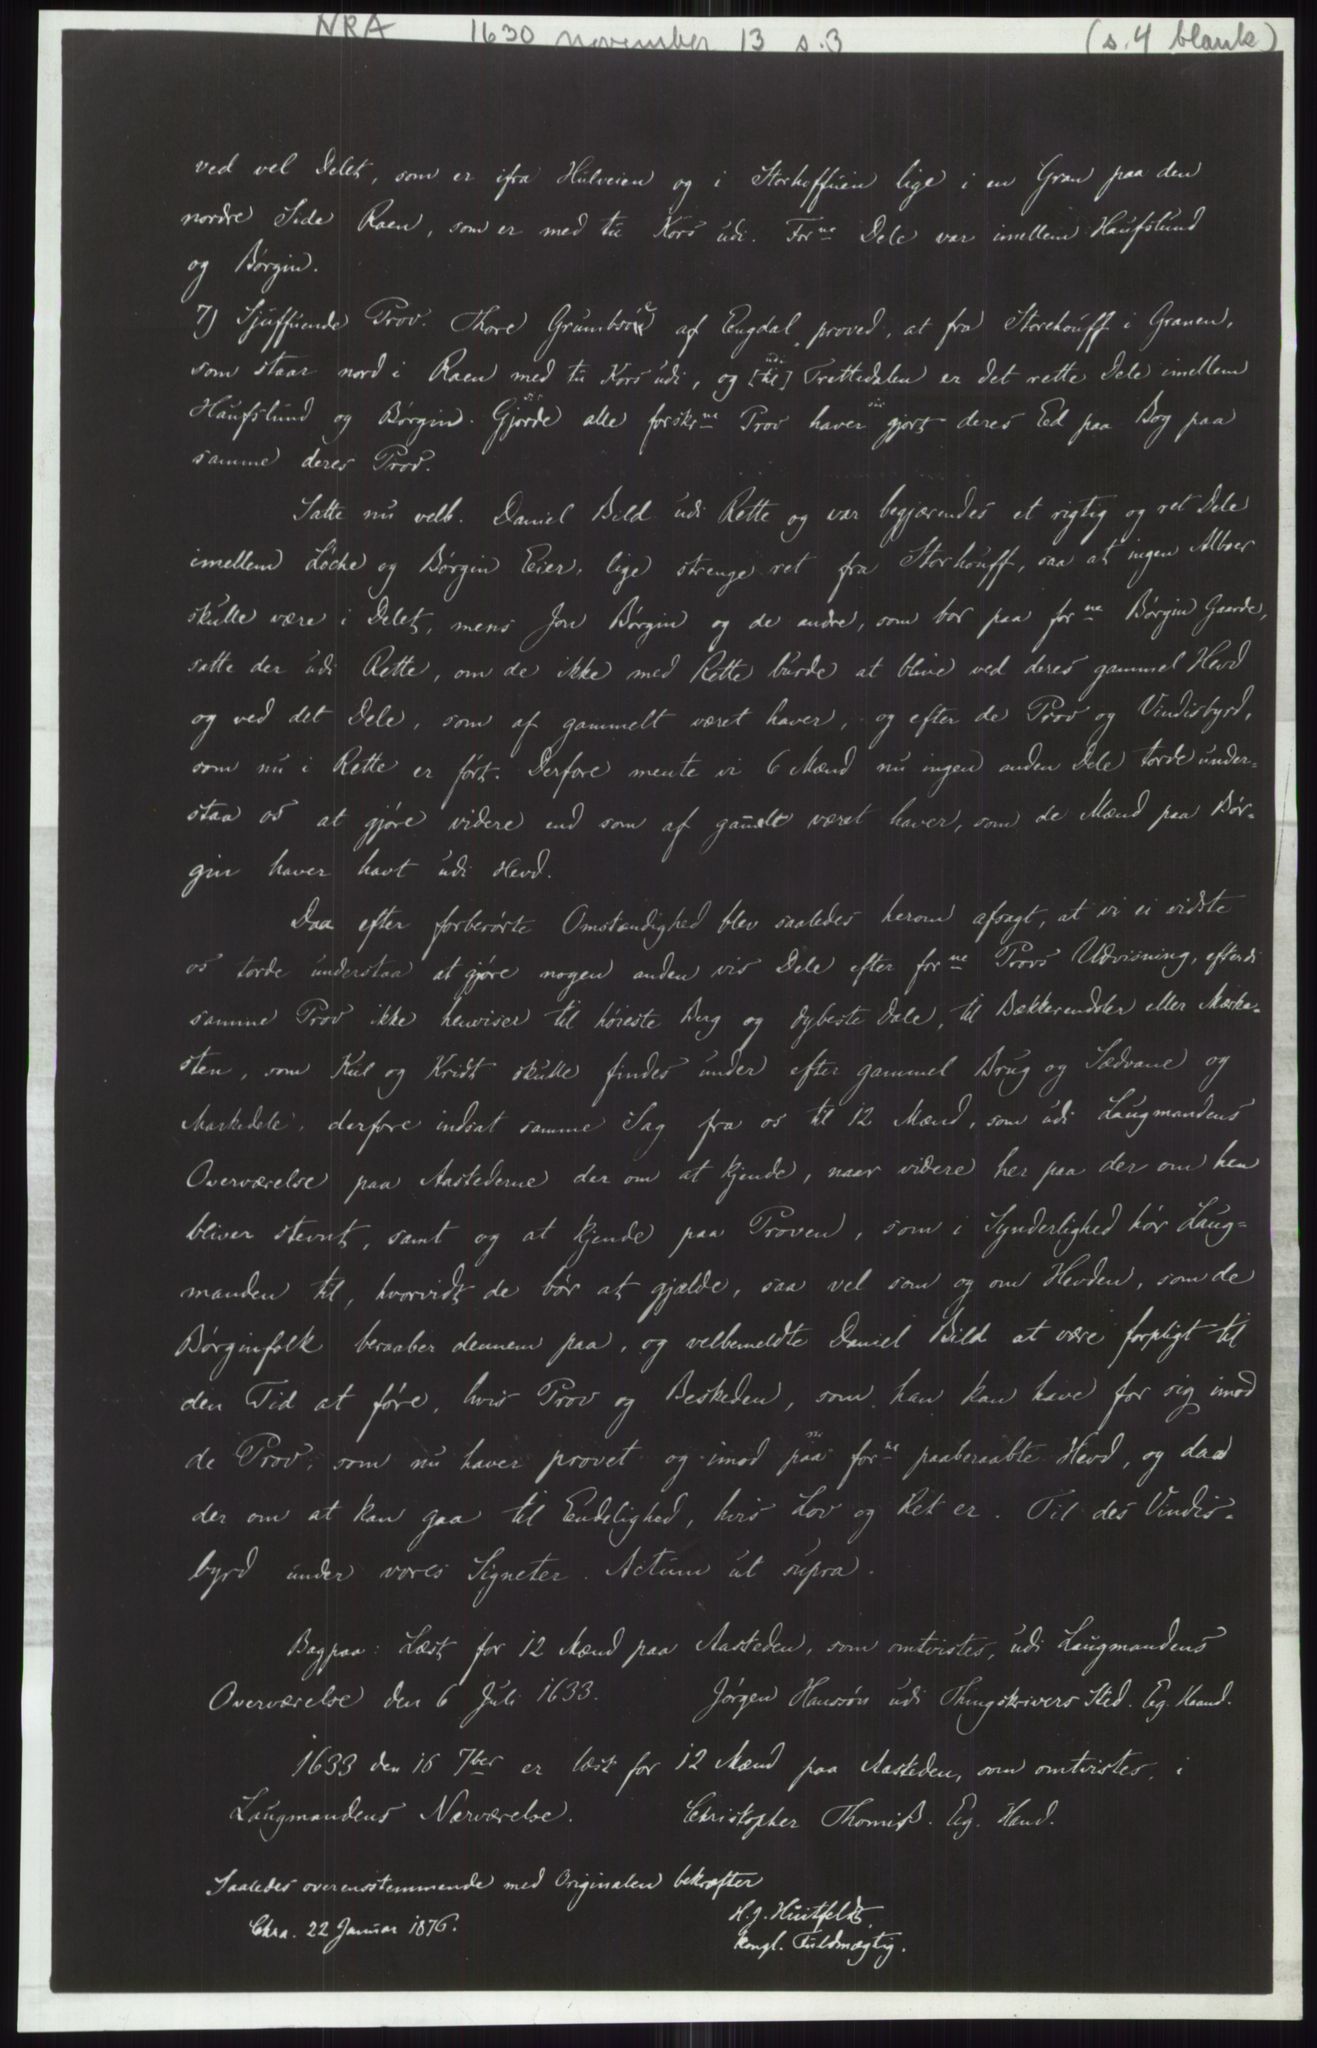 NRA 1630 november 13 s.3 (s. 4 blank)
ved vel Delet, som er ifra Hulveien og i Storhoffuen lige i en Gran paa den
nordre Side Raen, som er med tu Kors udi. For ne Dele var imellem Haufslund
og Børgin.
7) Sjuffuende Prov. Thore Grumbsød af Engdal, proved, at fra Storehouff i Granen,
som staar nord i Raen med tu Kors udi, og [til] udi Trettedalen er det rette Dele imellem
Haufslund og Børgin. Gjorde sic alle forskr ne Prov haver sic gjort deres Ed paa Bog paa
samme deres Prov.
Satte nu velb. Daniel Bild udi Rette og var begjærendes et rigtig og ret Dele
imellem Løcke og Børgin Eier, lige strenge ret fra Storhouff, saa at ingen Alboer
skulle være i Delet, mens Jon Børgin og de andre, som bor paa for ne Børgin Gaarde,
satte der udi Rette, om de ikke med Rette burde at blive ved deres gammel Hevd
og ved det Dele, som af gammelt været haver, og efter de Prov og Vindisbyrd,
som nu i Rette er ført. Derfore mente vi 6 Mænd nu ingen anden Dele torde under-
staa os at gjøre videre end som af gamelt været haver, som de Mænd paa Bør-
gin haver havt udi Hevd.
Daa efter forberørte Omstændighed blev saaledes herom afsagt, at vi ei vidste
os torde understaa at gjøre nogen anden vis Dele efter for ne Provs Udvisning, efterdi
samme Prov ikke henviser til høieste Berg og dybeste Dale, til Bækkerendsler eller Marka-
sten, som Kul og Kridt skulle findes under efter gammel Brug og Sædvane og
Markedele, derfore indsat samme Sag fra os til 12 Mænd, som udi Laugmandens
Overværelse paa Aastederne der om at kjende, naar videre her paa der om hen
bliver stevnt, samt og at kjende paa Proven, som i Synderlighed hør Laug-
manden til, hvorvidt de bør at gjælde, saa vel som og om Hevden, som de
Børginfolk beraaber dennem paa, og velbemeldte Daniel Bild at være forpligt til
den Tid at føre, hvis Prov og Beskeden, som han kan have for sig imod
de Prov, som nu haver provet og imod paa sic for ne paaberaabte Hevd, og daa
der om at kan gaa til Endelighed, hvis Lov og Ret er. Til des Vindis-
byrd under vores Signeter. Actum ut supra.
Bagpaa: Læst for 12 Mænd paa Aasteden, som omtvistes, udi Laugmandens
Overværelse den 6 Juli 1633. Jørgen Hanssøn udi Thingskrivers Sted. Eg. Haand.
1633 den 16 7ber er læst for 12 Mænd paa Aasteden, som omtvistes, i
Laugmandens Nærværelse. Christopher Thomiß. Eg. Hand.
Saaledes overensstemmende med Originalen bekræfter
Chra. 22 Januar 1876. H. J. Huitfeldt,
kongl. Fuldmægtig.